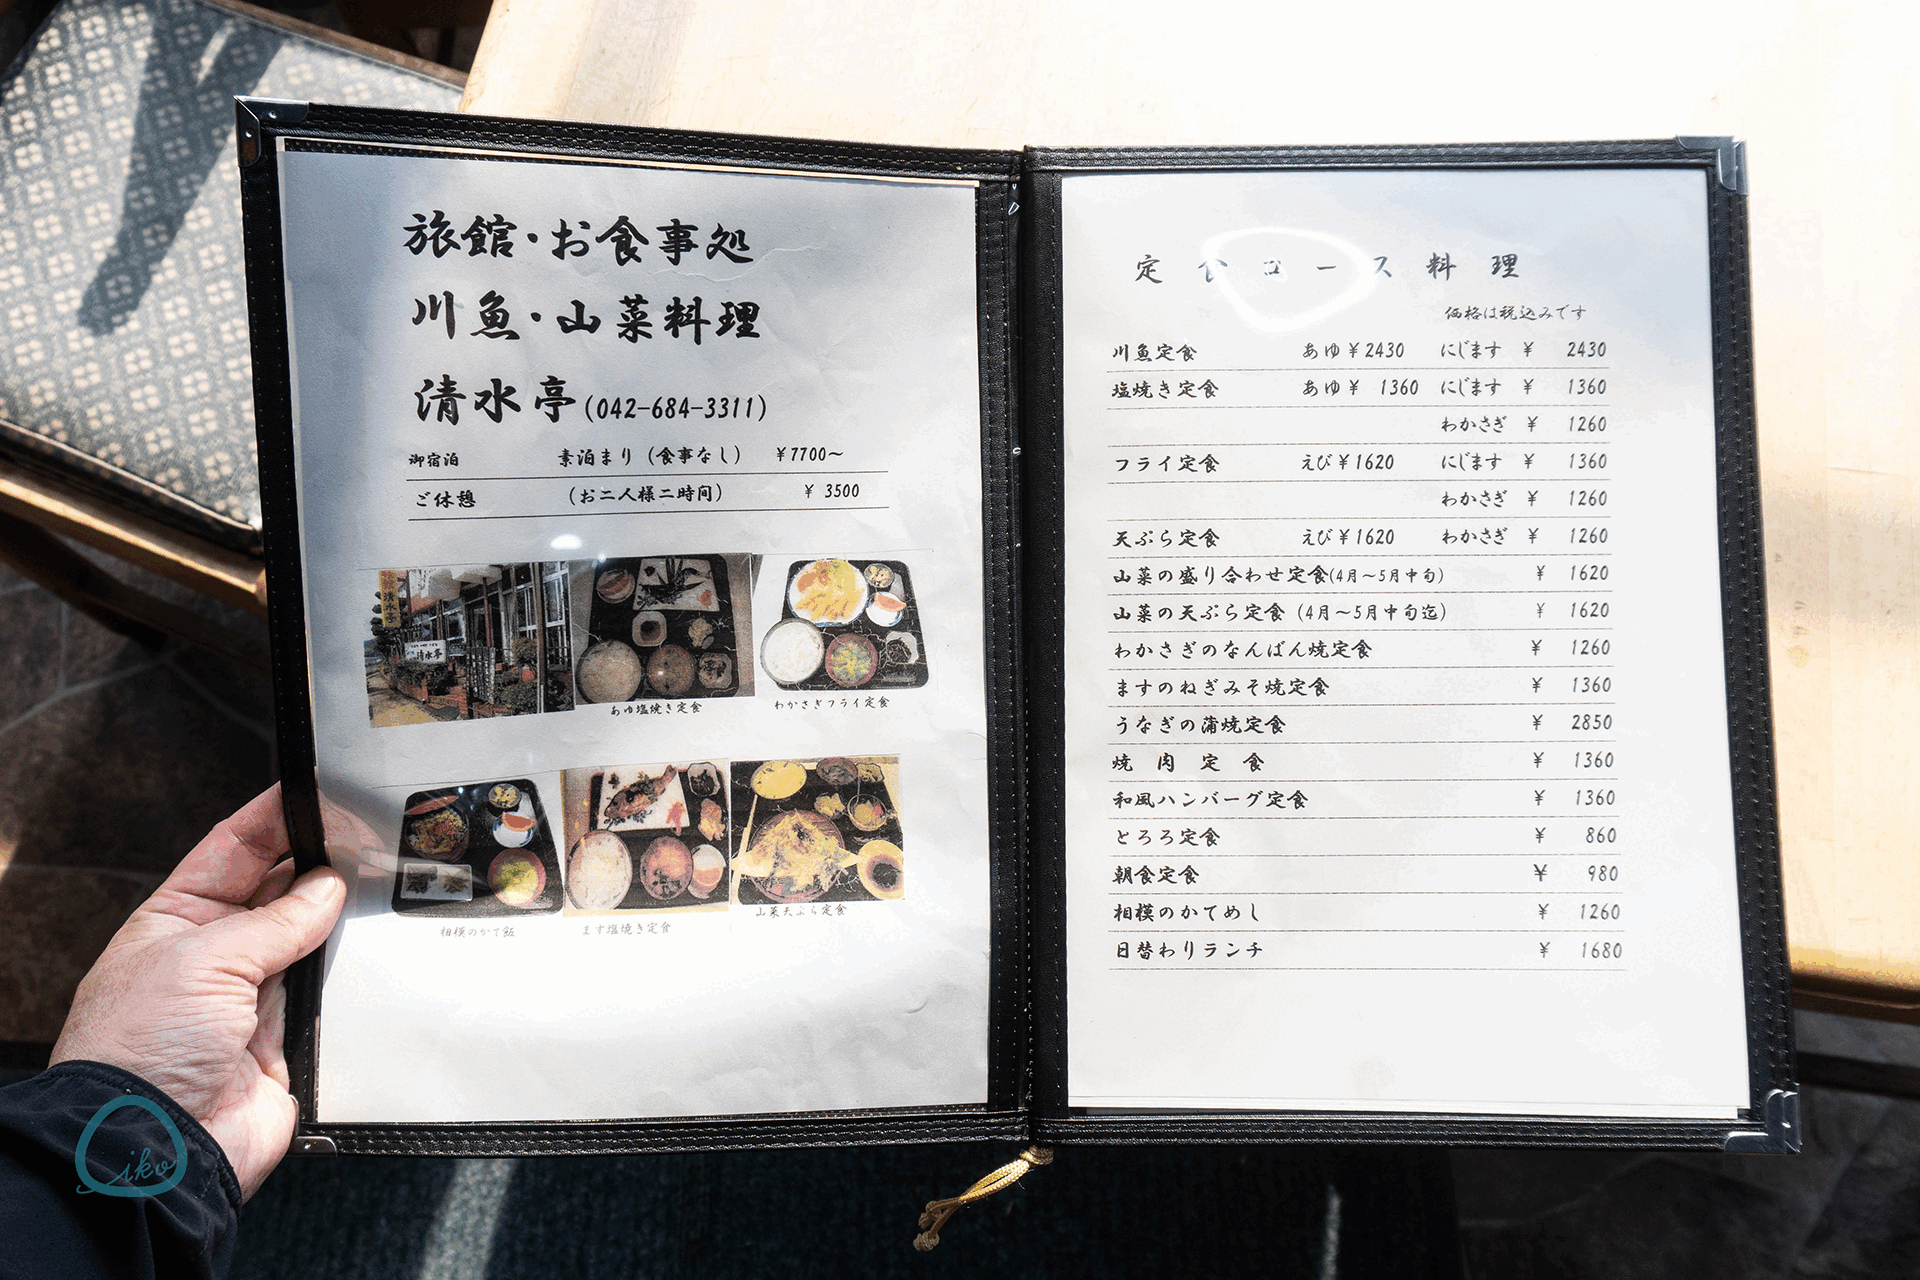 旅館・お食事処
川魚・山菜料理
清水亭(042-684-3311)
御宿泊 素泊まり(食事なし) ¥7700~
ご休憩 (お二人様二時間) ¥ 3500
清水亭
あゆ塩焼き定食
わかさぎフライ定食
相模のかて飯
ます塩焼き定食
山菜天ぷら定食
定食コース料理
価格は税込みです
川魚定食 あゆ ¥2430 にじます ¥ 2430
塩焼き定食 あゆ ¥ 1360 にじます ¥ 1360
わかさぎ ¥ 1260
フライ定食 えび ¥1620 にじます ¥ 1360
わかさぎ ¥ 1260
天ぷら定食 えび ¥1620 わかさぎ ¥ 1260
山菜の盛り合わせ定食(4月~5月中旬) ¥ 1620
山菜の天ぷら定食 (4月~5月中旬迄) ¥ 1620
わかさぎのなんばん焼定食 ¥ 1260
ますのねぎみそ焼定食 ¥ 1360
うなぎの蒲焼定食 ¥ 2850
焼肉定食 ¥ 1360
和風ハンバーグ定食 ¥ 1360
とろろ定食 ¥ 860
朝食定食 ¥ 980
相模のかてめし ¥ 1260
日替わりランチ ¥ 1680
iko